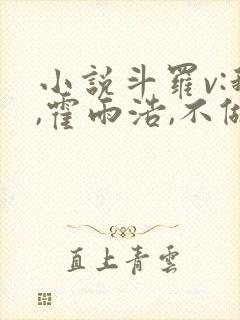 小説斗羅v:
,霍雨浩,不
直上青雲